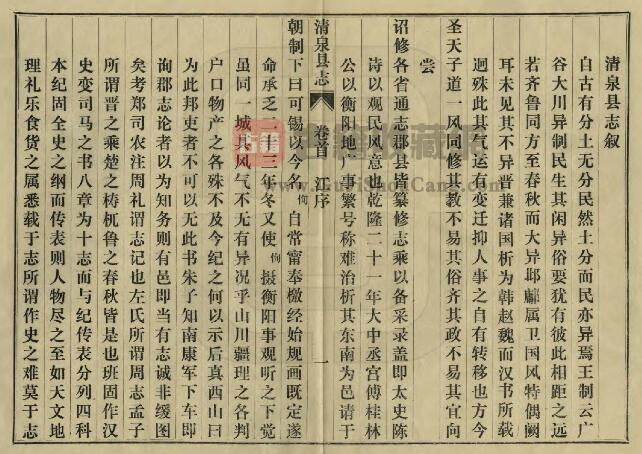 清泉县志叙
自古有分土无分民然土分而民亦异焉王制云广
谷大川异制民生其闲异俗要犹有彼此相距之远
若齐鲁同方至春秋而大异邶鄘属卫国风特偶阙
耳未见其不异晋兼诸国析为韩赵魏而汉书所载
迥殊此其气运有变迁抑人事之自有转移也方今
圣天子道一风同修其教不易其俗齐其政不易其宜向
尝
诏修各省通志郡县皆纂修志乘以备采录盖即太史陈
诗以观民风意也乾隆二十一年大中丞宫傅桂林
公以衡阳地广事繁号称难治析其东南为邑请于
清泉县志 卷首 江序 一
朝制下曰可锡以今名恂自常甯奉檄经始规画既定遂
命承乏二十三年冬又使恂摄衡阳事观听之下觉
虽同一城其风气不无有异况乎山川疆理之各判
户口物产之各殊不及今纪之何以示后真西山曰
为此邦吏者不可以无此书朱子知南康军下车即
询郡志论者以为知务则有邑即当有志诚非缓图
矣考郑司农注周礼谓志记也左氏所谓周志孟子
所谓晋之乘楚之梼杌鲁之春秋皆是也班固作汉
史变司马之书八章为十志而与纪传表分列四科
本纪固全史之纲而传表则人物尽之至如天文地
理礼乐食货之属悉载于志所谓作史之难莫于志